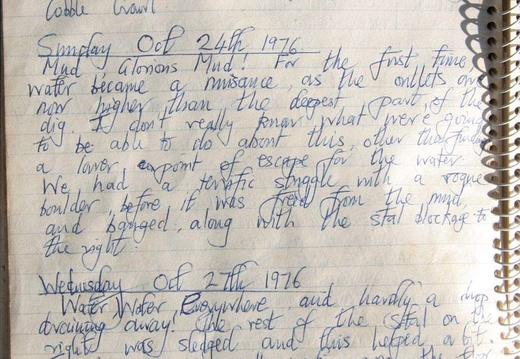 Cobble Crawl
Sunday Oct 24th 1976
Mud, Glorious Mud! For the first time
water became a nuisance, as the outlets are
now higher than the deepest part of the
dig, I don't really know what we're going
to be able to do about this, other than finding
a lower point of escape for the water.
We had a terrific struggle with a rogue
boulder, before it was freed from the mud,
and banged, along with the stal blockage to
the right.
Wednesday Oct 27th 1976
Water Water, Everywhere and hardly a drop
draining away! The rest of the stal on the
right was sledged and this helped a bit.
the